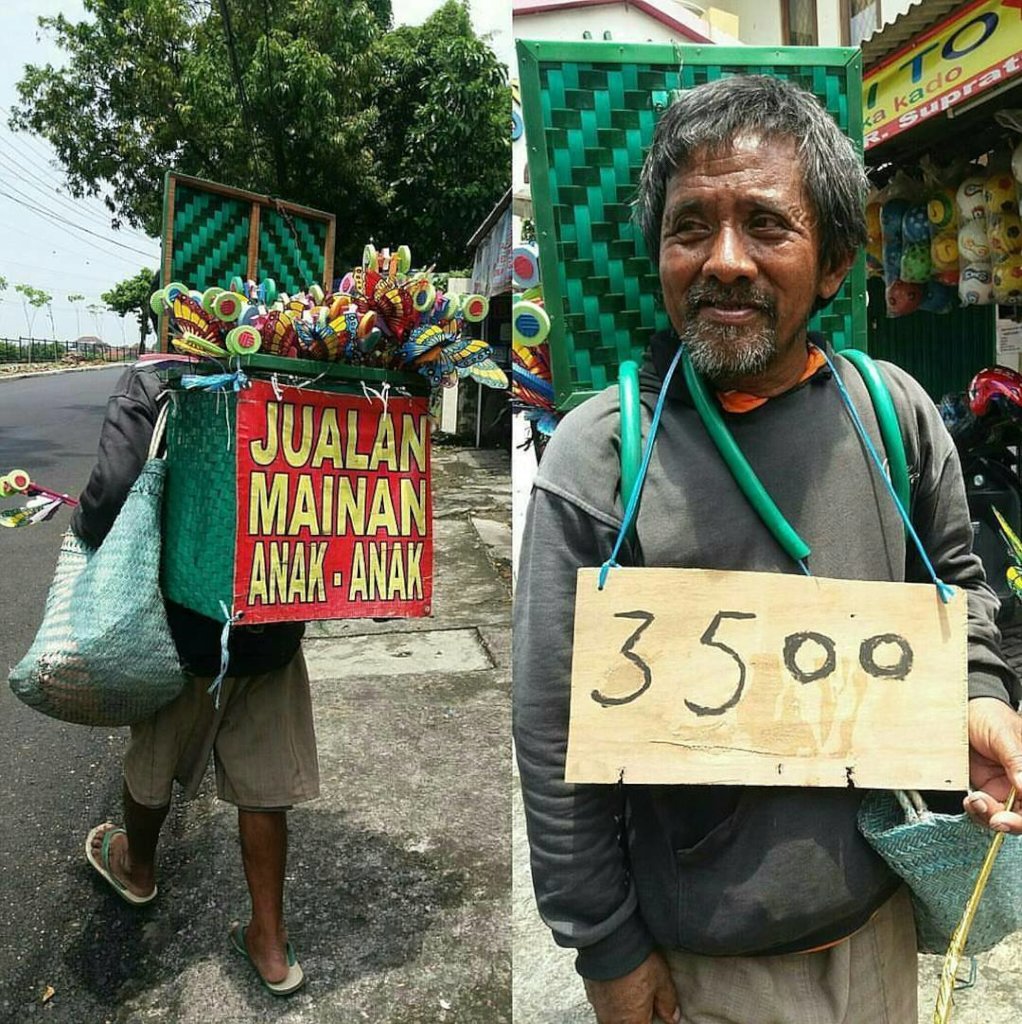 JUALAN
MAINAN
ANAK - ANAK
TO
ka kado
R. Suprat
3500